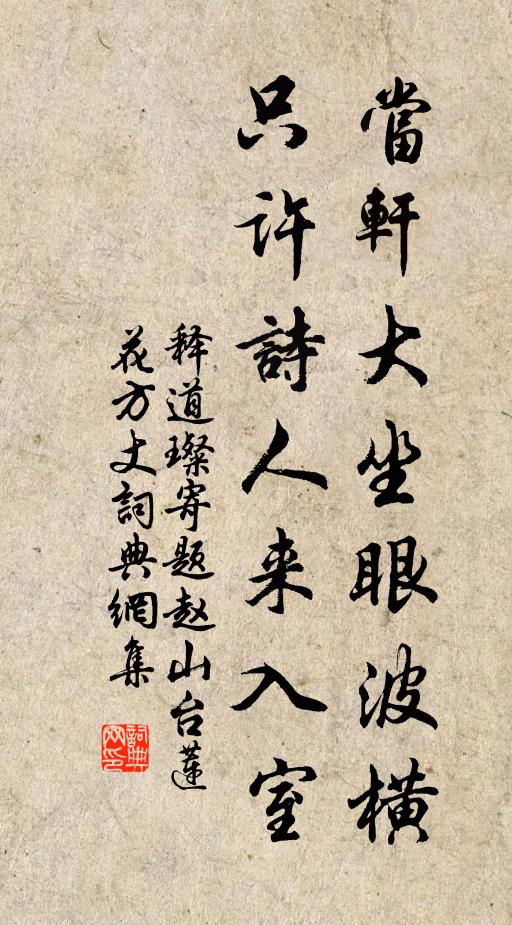 當軒大坐眼波橫
只許詩人来入室
释道璨寄题赵山台蓮
花方丈詞典網集
詞典網印